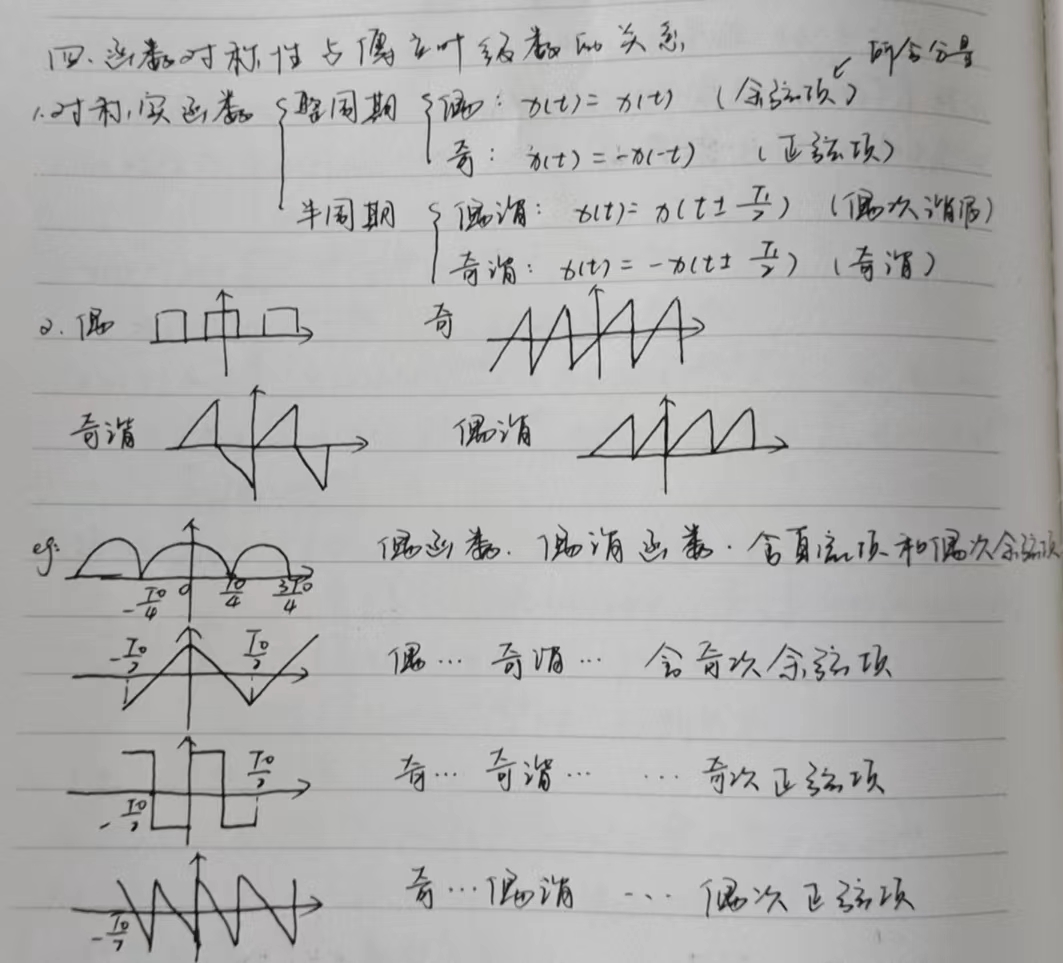 四、函数对称性与傅立叶级数的关系
所含分量
1.对称,实函数 { 整周期 { 偶: x(t)= x(t) (余弦项)
奇: x(t)=-x(-t) (正弦项)
半周期 { 偶谐: x(t)= x(t±T₁/2) (偶次谐波)
奇谐: x(t)=-x(t±T₁/2) (奇谐)
2.偶 奇
奇谐 偶谐
eg: 偶函数.偶谐函数.含直流项和偶次余弦项
-T0/4 0 T0/4 3T0/4
-T0/2 T0/2 偶… 奇谐… 含奇次余弦项
-T0/2 T0/2 奇… 奇谐… … 奇次正弦项
-T0/2 奇…偶谐 … 偶次正弦项